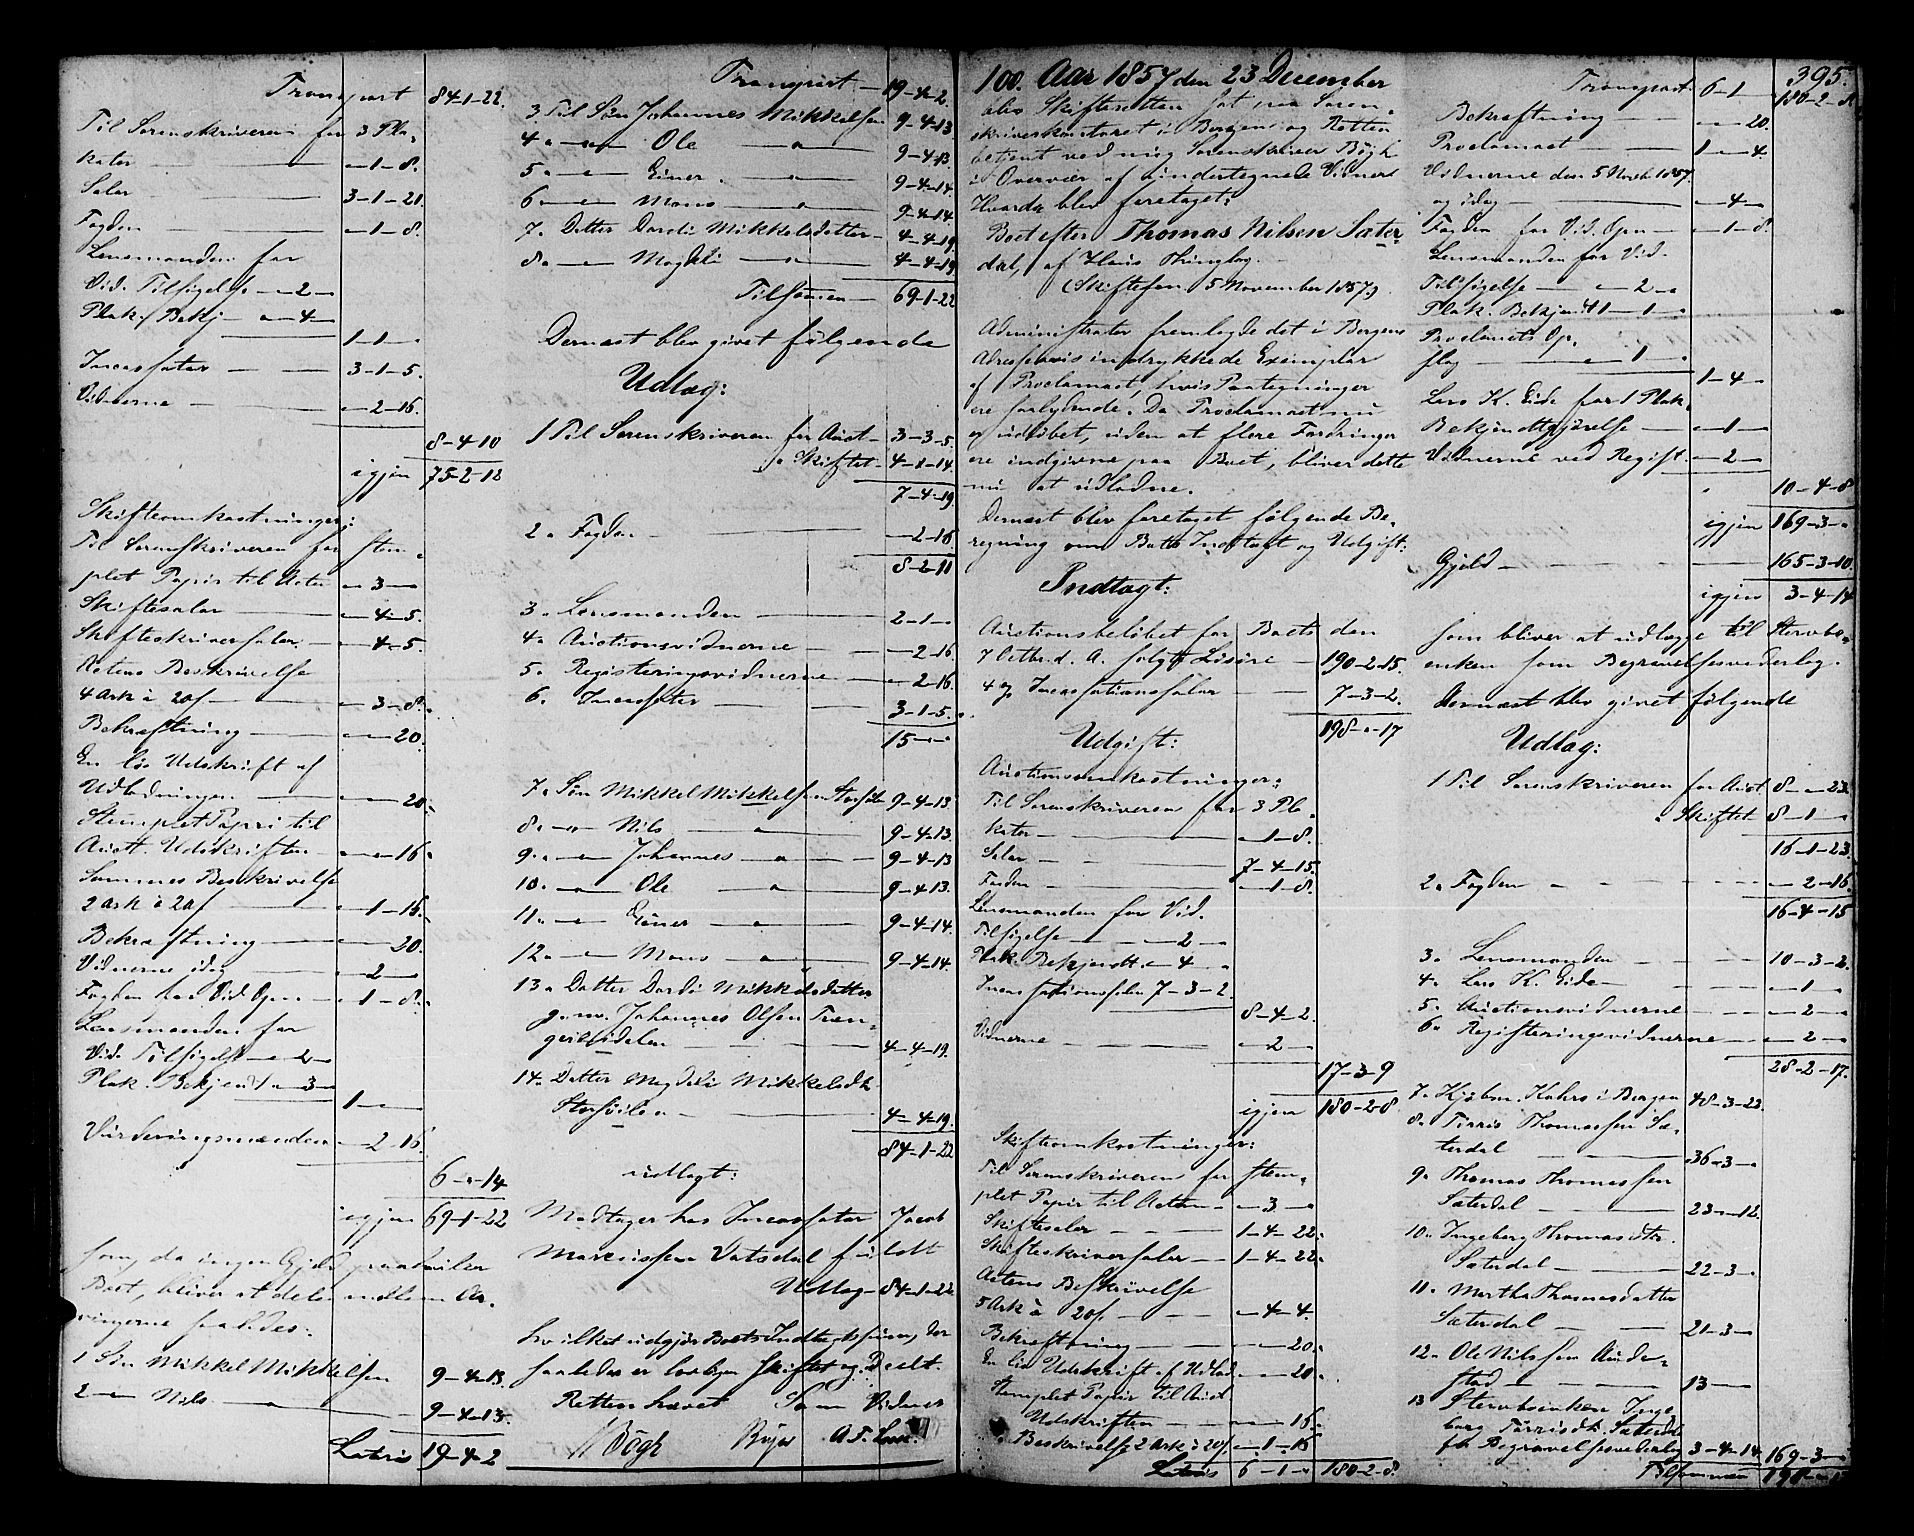 Transport 84-1-22.
Til Sorenskriveren for 3 Pla-
kater — „-1-8.
Salær — 3-1-21.
Fogden — „-1-8.
Lensmanden for
Vid. Tilsigelse „-2-„
Plak. Bekj. „-4-„
1-1-„
Incassator — 3-1-5.
Vidnerne — „-2-16.
8-4-10
igjen 75-2-12
Skifteomkostninger:
Til Sorenskriveren for stem-
plet Papir til Acten „-3-„
Skiftesalær — „-4-5.
Skifteskriversalær — „-4-5.
Actens Beskrivelse
4 Ark à 20 s — „-3-8.
Bekræftning — „-„-20.
En løs Udskrift af
Udlodningen — „-„-20.
Stemplet Papir til
Auct. Udskriften — „-„-16.
Sammes Beskrivelse
2 Ark à 20 s — „-1-16.
Bekræftning — „-„-20.
Vidnerne idag — „-2-„
Fogden for Vid. Opn. — „-1-8.
Lensmanden for
Vid. Tilsigelse „-2-„
Plak. Bekjendt. „-3-„
1-„-„
Vurderingsmændene „-2-16.
6-„-14
igjen 69-1-22
som, da ingen Gjæld paahviler
Boet, bliver at dele mellem Ar-
vingerne saaledes:
1 Søn Mikkel Mikkelsen 9-4-13.
2 „ — Nils — „ — 9-4-13.
Lateris 19-4-2
Transport — 19-4-2.
3 Til Søn Johannes Mikkelsen 9-4-13.
4 „ — „ Ole — „ 9-4-13
5 „ — „ Einer — „ 9-4-14.
6 „ — „ Mons — „ 9-4-14.
7 „ Datter Dordi Mikkelsdatter — 4-4-19
8 „ — Magdeli — „ 4-4-19
Tilsammen — 69-1-22
Dernæst blev givet følgende
Udlæg:
1 Til Sorenskriveren for Auct. 3-3-5
„ Skiftet 4-1-14.
7-4-19.
2 „ Fogden — „-2-16
8-2-11
3 „ Lensmanden — 2-1-„
4 „ Auctionsvidnerne — „-2-16.
5 „ Registeringsvidnerne „-2-16.
6 „ Incassator — 3-1-5.
15-„-„
7 „ Søn Mikkel Mikkelsen 9-4-13
8 „ — „ Nils — „ 9-4-13.
9 „ — „ Johannes — „ 9-4-13
10 „ — „ Ole — „ 9-4-13.
11 „ — „ Einer — „ 9-4-14.
12 „ — „ Mons — „ 9-4-14.
13 „ Datter Dordi Mikkelsdatter
g. m. Johannes Olsen
4-4-19.
14 „ Datter Magdeli Mikkelsdtr.
4-4-19.
84-1-22
udlagt:
Modtager hos Incassator Jacob
Markussen Vatsdal fuldt
Udlæg — 84-1-22
hvilket udgjør Boets Indtægtssum, der
saaledes er lovlig Skiftet og Deelt.
Retten hævet Som Vidner
Bøgh
100. Aar 1857 den 23 December
blev Skifteretten sat paa Soren-
skriverkontoret i Bergen og Retten
betjent ved mig Sorenskriver Bøgh
i Overvær af undertegnede Vidner
Hvorda blev foretaget:
Boet efter Thomas Nilsen Sæter-
dal, af Haus Thinglag.
(Skiftesam. 5 November 1857.)
Administrator fremlagde det i Bergens
Adresseavis indrykkede Exemplar
af Proclamaet, hvis Paategninger
ere saalydende. Da Proclamaet nu
er udløbet, uden at flere Fordringer
ere indgivne paa Boet, bliver dette
nu at udlodne.
Dernæst blev foretaget følgende Be-
regning over Boets Indtægt og Udgift:
Indtægt:
Auctionsbeløbet for Boets den
7 Octbr. d. A. solgte Løsøre — 190-2-15.
4% Incassationssalær — 7-3-2.
198-„-17
Udgift:
Auctionsomkostninger:
Til Sorenskriveren for 3 Pla-
kater — „-1-8.
Salær — 7-4-15.
Fogden — „-1-8.
Lensmanden for Vid.
Tilsigelse — „-2-„
Plak. Bekjendt. „-4-„
Incassationssalær 7-3-2.
8-4-2.
Vidnerne — „-2-„
17-3-9
igjen 180-2-8
Skifteomkostninger:
Til Sorenskriveren for stem-
plet Papir til Acten „-3-„
Skiftesalær — 1-4-22.
Skifteskriversalær — 1-4-22.
Actens Beskrivelse
5 Ark à 20 s. — „-4-4.
Bekræftning — „-„-20.
En løs Udskrift af Udlod. „-„-20.
Stemplet Papir til Auct.
Udskriften — „-„-16.
„ Beskrivelse 2 Ark à 20 s. „-1-16
Lateris 6-1-„ 180-2-8.
395.
Transport 6-1-„ 180-2-8
Bekræftning — „-„-20.
Proclamaet — 1-„-4.
Vidnerne den 5 Novbr. 1857
og idag — „-4-„
Fogden for Vid. Opn. — „-1-8.
Lensmanden for Vid.
Tilsigelse — „-2-„
Plak. Bekjendt. 1-1-„
Proclamets Op-
slag — „-1-„
1-4-„
Lars K. Eide for 1 Plak.
Bekjendtgjørelse — „-1-„
Vidnerne ved Regist. „-2-„
10-4-8
igjen 169-3-„
Gjæld — 165-3-10.
igjen 3-4-14
som bliver at udlægge til Stervbo-
enken som Begravelsesvederlag.
Dernæst blev givet følgende
Udlæg:
1 Til Sorenskriveren for Auct. 8-„-23.
„ Skiftet 8-1-„
16-1-23.
2 „ Fogden — „-2-16.
16-4-15
3 „ Lensmanden — 10-3-2.
4 „ Lars K. Eide — „-1-„
5 „ Auctionsvidnerne — „-2-„
6 „ Registeringsvidnerne — „-2-„
28-2-17.
7 „ Kjøbm. Kahrs i Bergen 48-3-22.
8 „ Torris Thomassen Sæ-
terdal — 36-3-„
9 „ Thomas Thomassen
Sæterdal — 23-„-12.
10 „ Ingeborg Thomasdtr.
Sæterdal — 22-3-„
11 „ Martha Thomasdatter
Sæterdal — 21-3-„
12 „ Ole Nilssen
13-„-„
13 Stervboenken Inge-
borg Torrisdtr. Sæterdal
for Begravelsesvederlag 3-4-14 169-3-„
Tilsammen 198-„-17